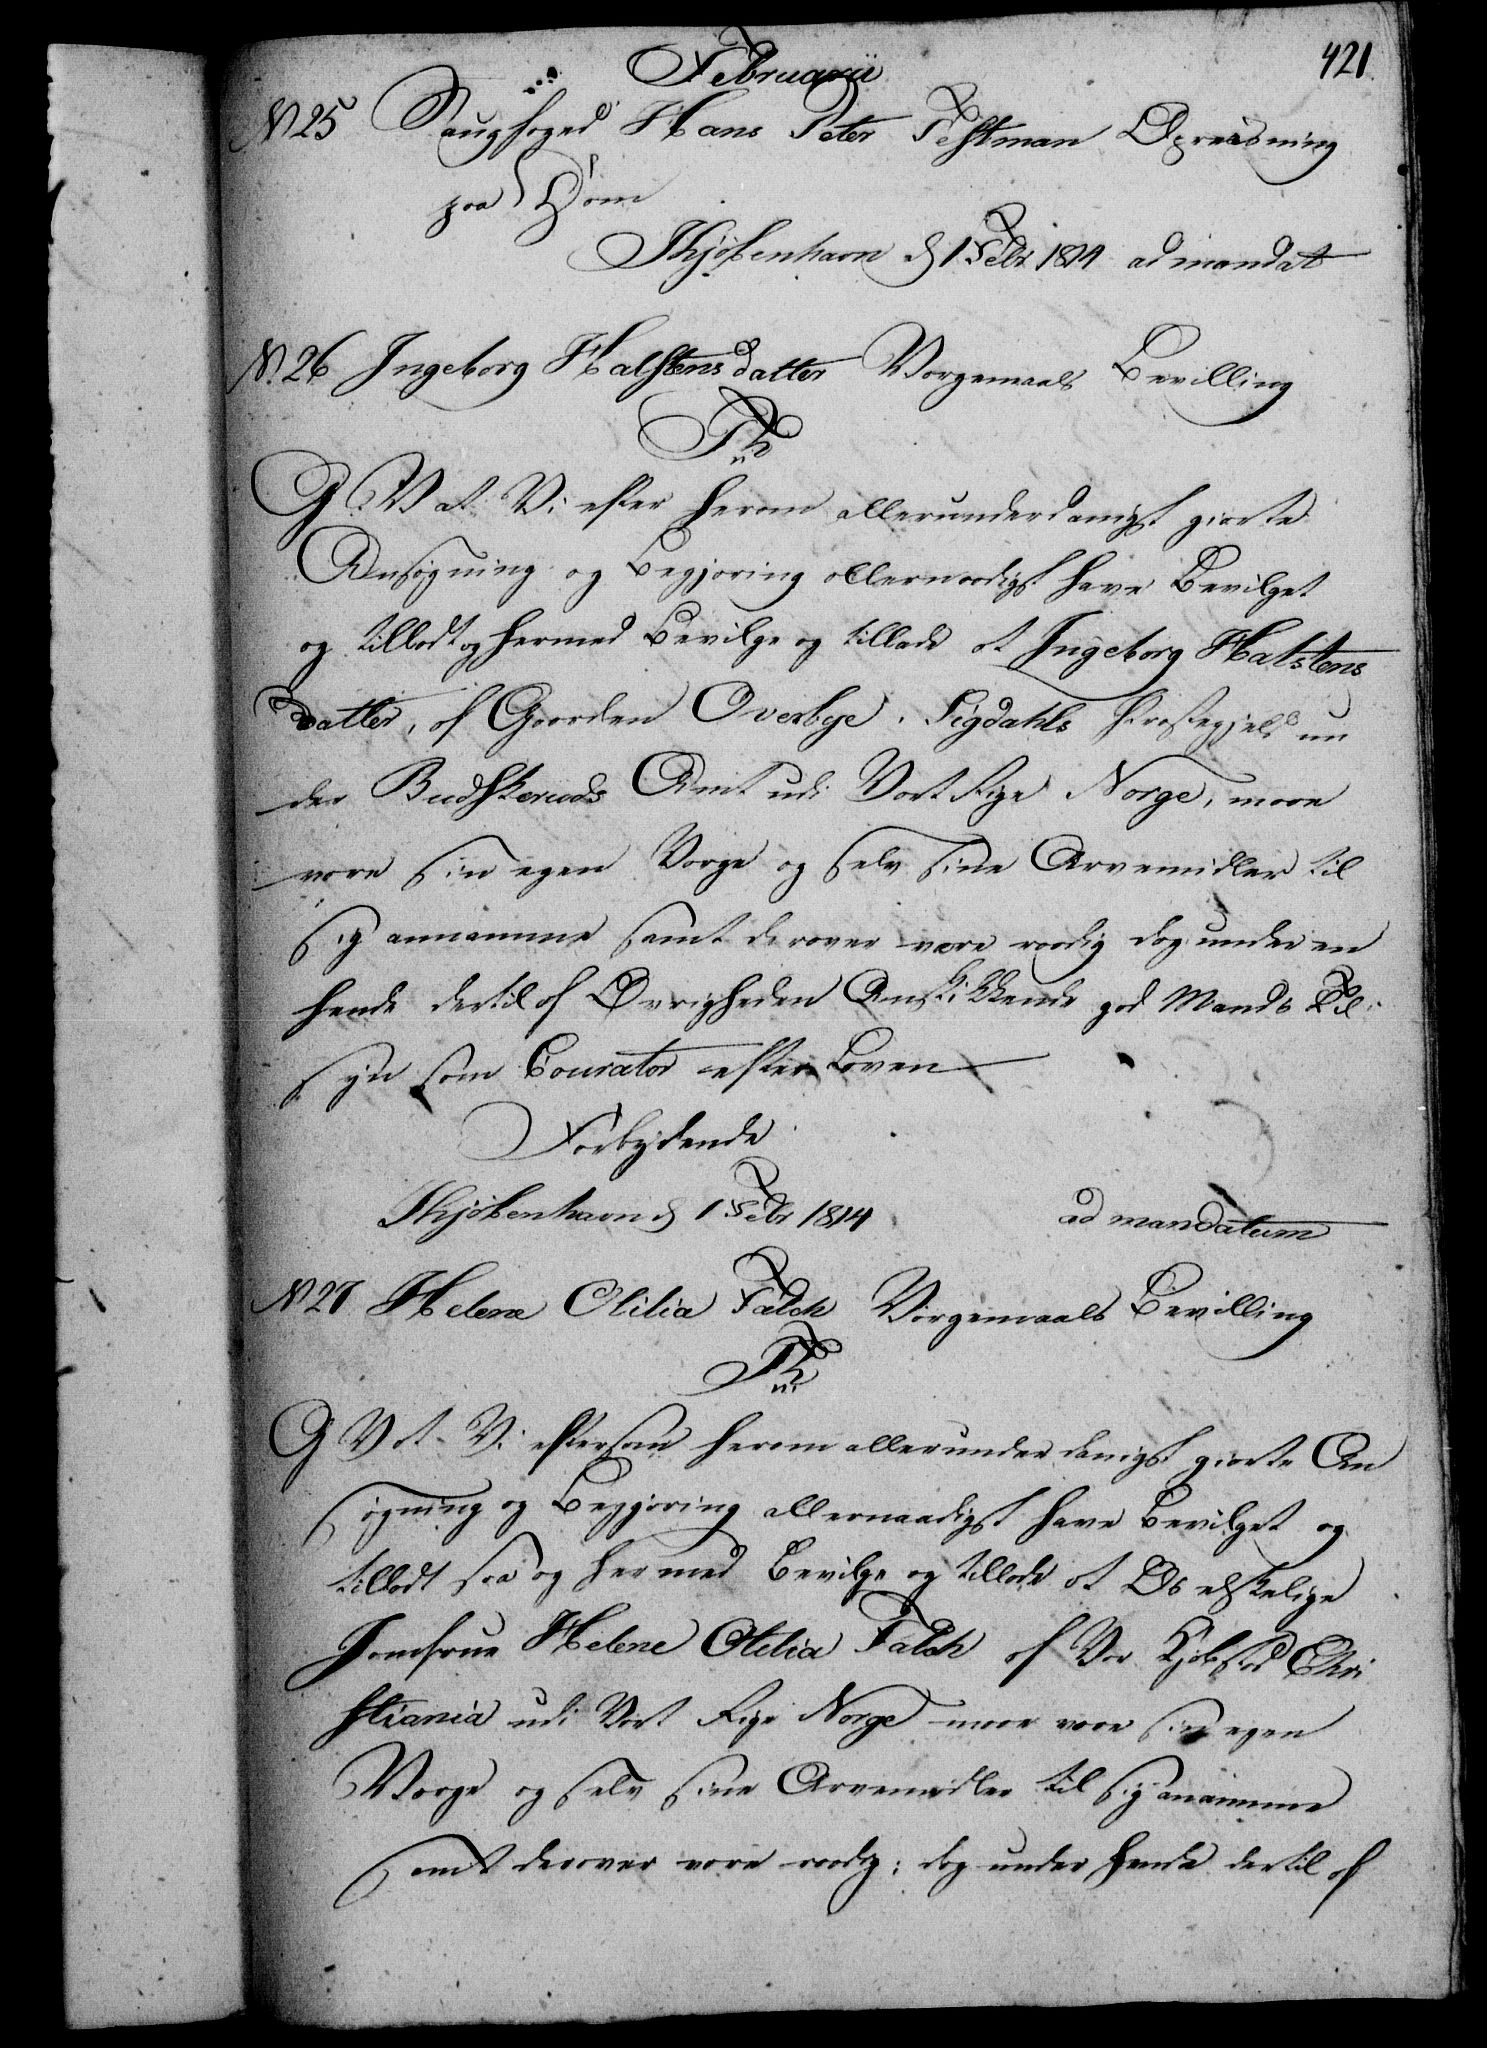 Februarii
421
N 25 Saugfoged Hans Peter Festman Opreisning
paa Dom
Kjøbenhavn d 1 Febr 1814 ad mandat
N. 26 Ingeborg Halstensdatter Vorgemaals Bevilling
G V at Vi efter herom allerunderdanigst giorte
Ansøgning og Begjæring allernaadigst have Bevilget
og tilladt og hermed Bevilge og tillade at Ingeborg Halstens
datter, af Gaarden Overbye i Sigdahls Præstegjeld un
der Budskeruds Amt udi Vort Rige Norge, maae
være sin egen Vorge og selv sine Arvemidler til
sig annamme samt derover være raadig dog under en
hende dertil af Øvrigheden Anskikkende god Mands Til
syn som Courator efter Loven
Forbydende
Kjøbenhavn d 1 Febr 1814 ad mandatum
N 27 Helene Otilia Falch Vorgemaals Bevilling
G V at Vi eftersom herom allerunderdanigst giorte An
søgning og Begjæring allernaadigst have Bevilget og
tilladt saa og hermed Bevilge og tillade at Os elskelige
Jomfrue Helene Otilia Falch af Vor Kjøbstad Chri
stiania udi Vort Rige Norge maae være sin egen
Vorge og selv sine Arvemidler til sig anamme
samt derover være raadig; dog under hende dertil af